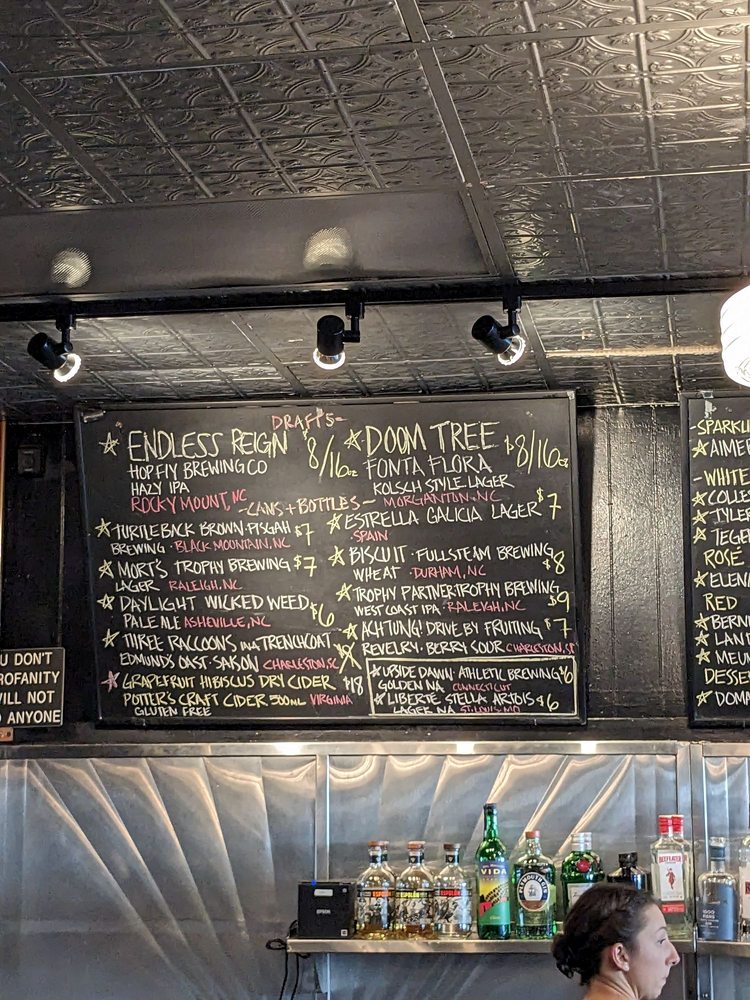 DRAFTS-
☆ ENDLESS REIGN $8/16oz
HOPFLY BREWING CO
HAZY IPA
ROCKY MOUNT, NC
☆ DOOM TREE $8/16oz
FONTA FLORA
KOLSCH STYLE LAGER
MORGANTON-NC
~CANS + BOTTLES~
☆ TURTLEBACK BROWN-PISGAH $7
BREWING - BLACK MOUNTAIN, NC
☆ MORT'S TROPHY BREWING $7
LAGER RALEIGH, NC
☆ DAYLIGHT WICKED WEED $6
PALE ALE ASHEVILLE, NC
☆ THREE RACCOONS in a TRENCHCOAT
EDMUNDS OAST-SAISON CHARLESTON, SC
☆ GRAPEFRUIT HIBISCUS DRY CIDER $18
POTTER'S CRAFT CIDER 500mL VIRGINIA
GLUTEN FREE
☆ ESTRELLA GALICIA LAGER $7
SPAIN
☆ BISCUIT - FULLSTEAM BREWING $8
WHEAT - DURHAM, NC
☆ TROPHY PARTNER-TROPHY BREWING $9
WEST COAST IPA - RALEIGH, NC
☆ ACHTUNG! DRIVE BY FRUITING $7
REVELRY - BERRY SOUR CHARLESTON, SC
☆ UPSIDE DAWN ATHLETIC BREWING $6
GOLDEN NA CONNECTICUT
☆ LIBERTÉ STELLA ARTOIS $6
LAGER NA ST. LOUIS, MO
-SPARKL
☆ AIME
-WHITE
☆ COLLE
☆ TYLER
☆ TEGE
ROSÉ
☆ ELENA
RED
☆ BERN
☆ LAN
☆ MEUN
DESSE
☆ DOM
U DON'T
ROFANITY
ILL NOT
ANYONE
EPSON
ESPOLÒN
ESPOLÒN
ESPOLÒN
VIDA
PLYMOUTH GIN
BEEFEATER